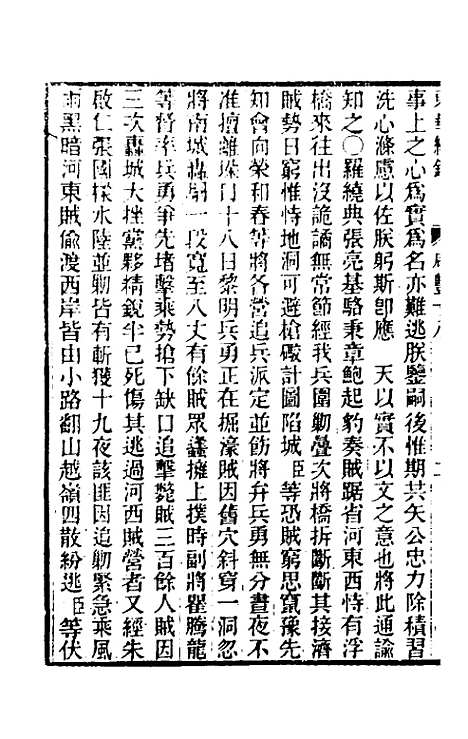 事上之心爲實爲名亦難逃朕鑒嗣後惟期共矢公忠力除積習
洗心滌慮以佐朕躬斯卽應　天以實不以文之意也將此通諭
知之〇羅繞典張亮基駱秉章鮑起豹奏賊踞省河東西恃有浮
橋來往出沒詭譎無常節經我兵圍勦疊次將橋拆斷斷其接濟
賊勢日窮惟恃地洞可避槍礮計圖陷城臣等恐賊窮思竄豫先
知會向榮和春等將各營追兵派定並飭將弁兵勇無分晝夜不
准擅離垛口十八日黎明兵勇正在掘濠賊因舊穴斜穿一洞忽
將南城轟塌一段寬至八丈有餘賊眾蠭擁上撲時副將瞿騰龍
等督率兵勇爭先堵擊乘勢搶下缺口追擊斃賊三百餘人賊因
三次轟城大挫黨夥精銳半已死傷其逃過河西賊營者又經朱
啟仁張國樑水陸並勦皆有斬獲十九夜該匪因追勦緊急乘風
雨黑暗河東賊偷渡西岸皆由小路翻山越嶺四散紛逃臣等伏